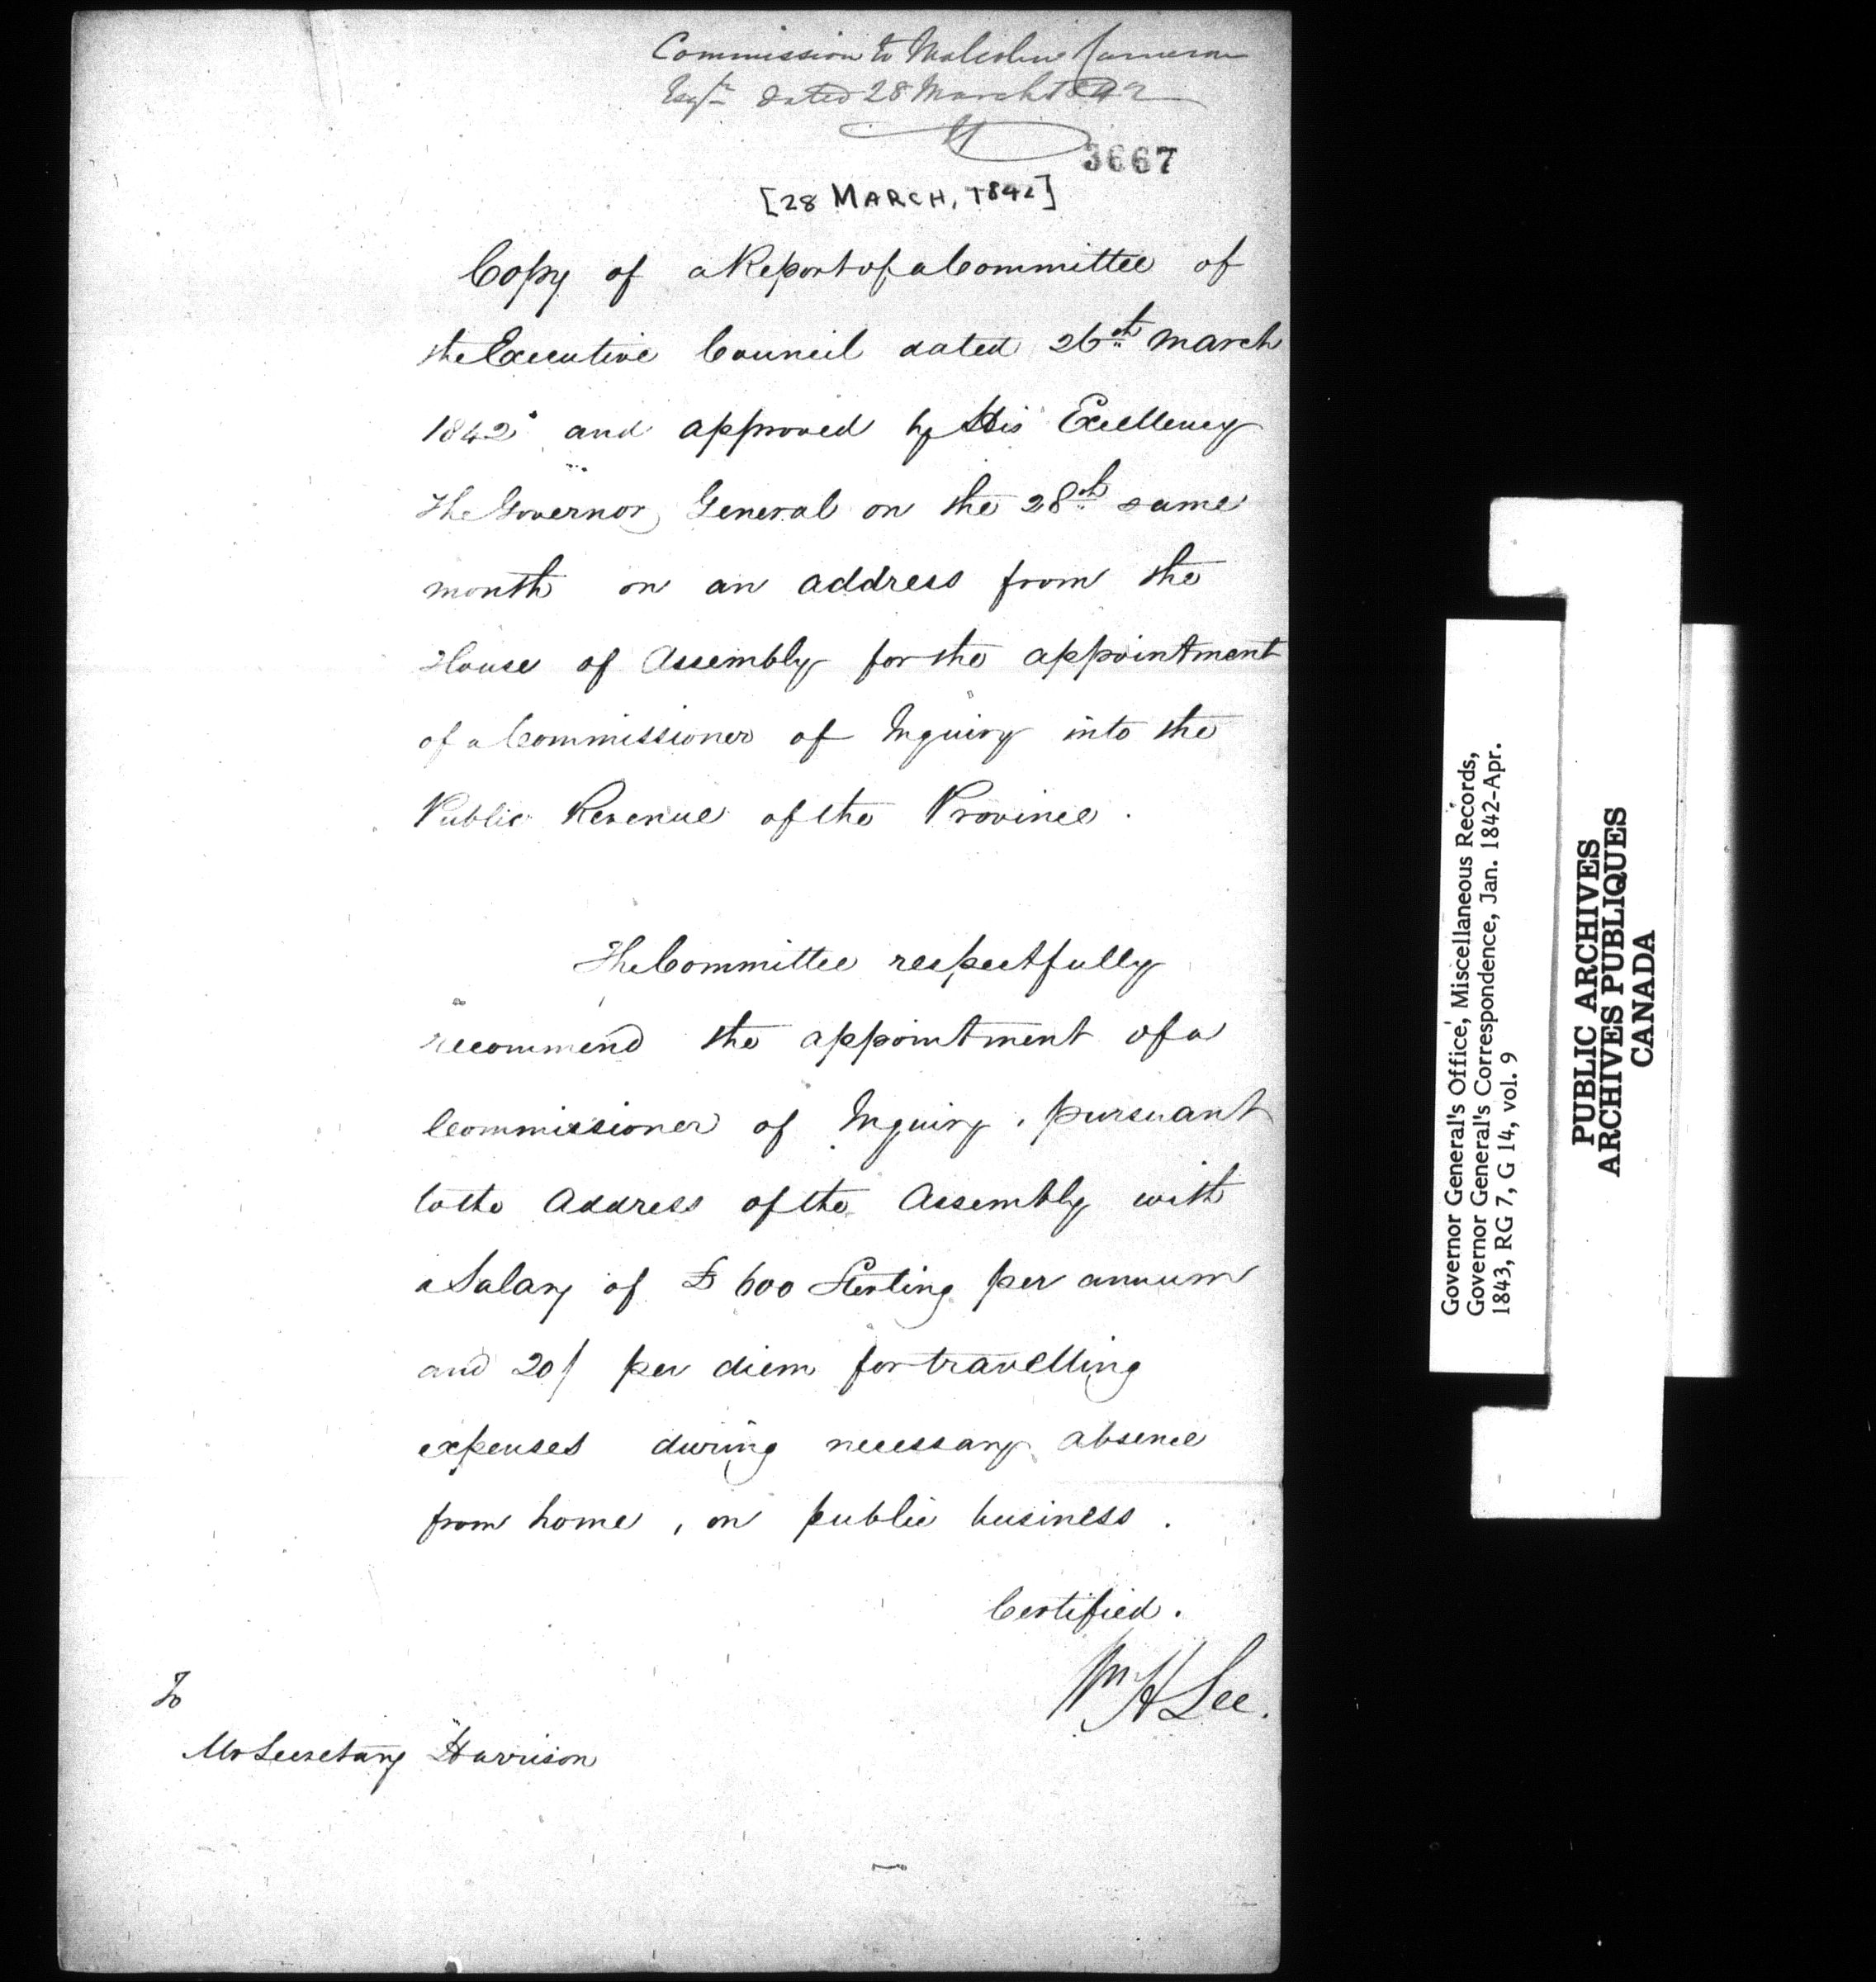 Commission to Malcolm Cameron
Esqr dated 28 March 1842
3667
[28 MARCH, 1842]
Copy of a Report of a Committee of
the Executive Council dated 26th March
1842 and approved by His Excellency
The Governor General on the 28th same
month on an address from the
House of Assembly for the appointment
of a Commissioner of Inquiry into the
Public Revenue of the Province.
The Committee respectfully
recommend the appointment of a
Commissioner of Inquiry, pursuant
to the Address of the Assembly with
a Salary of £600 Sterling per annum
and 20/ per diem for travelling
expenses during necessary absence
from home, on public business.
Certified.
Wm H Lee.
To
Mr Secretary Harrison
Governor General's Office, Miscellaneous Records,
Governor General's Correspondence, Jan. 1842-Apr.
1843, RG 7, G 14, vol. 9
PUBLIC ARCHIVES
ARCHIVES PUBLIQUES
CANADA